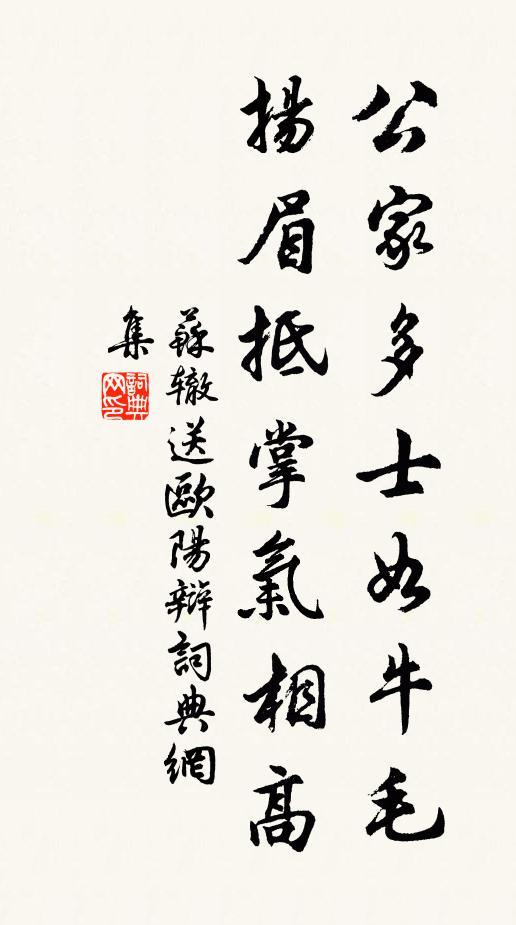 公家多士如牛毛
揚眉抵掌氣相高
蘇轍送歐陽辯詞典網
集
詞典
网印